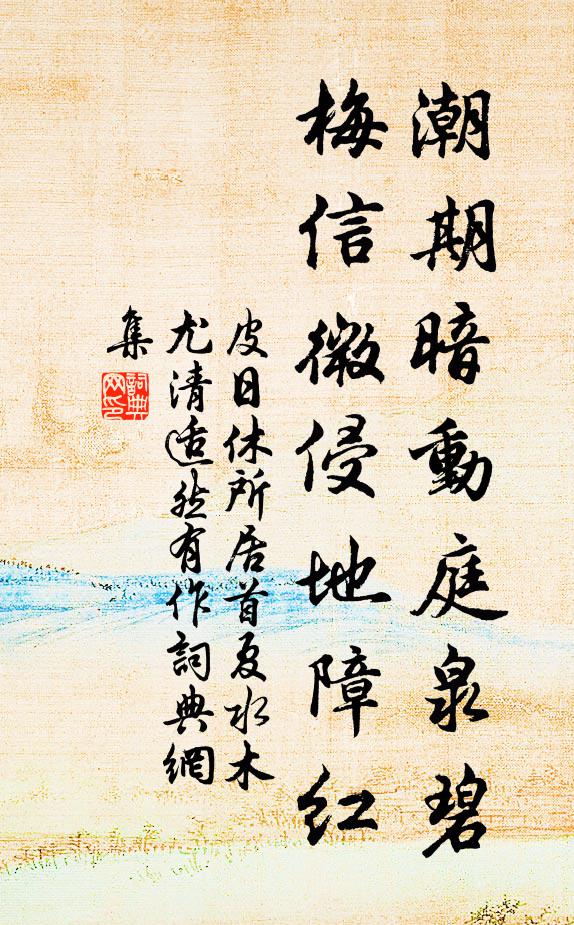 潮期暗動庭泉碧
梅信微侵地障红
皮日休所居首夏水木
尤清适然有作詞典網
集
詞典
网印